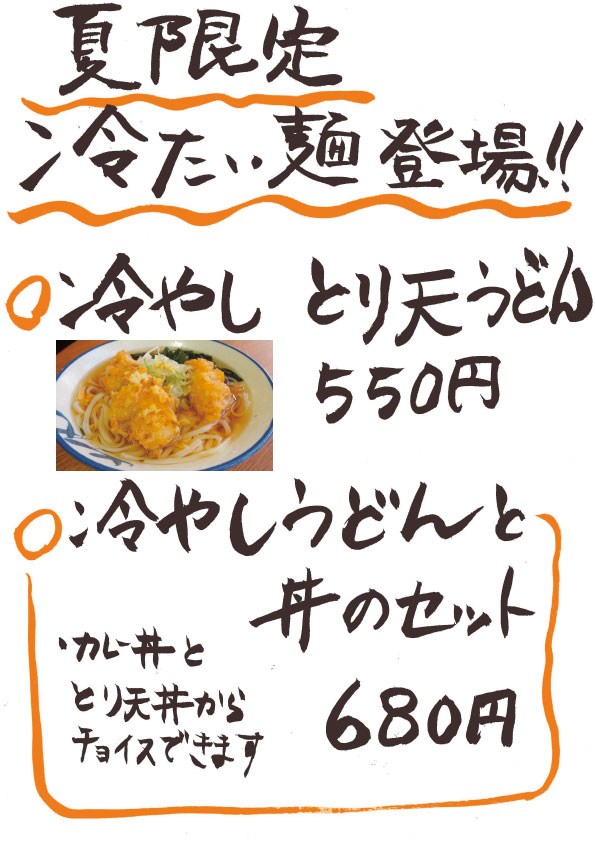 夏限定
冷たい麺登場!!
冷やし とり天うどん
550円
冷やしうどんと
丼のセット
・カレー丼と
とり天丼から
チョイスできます
680円